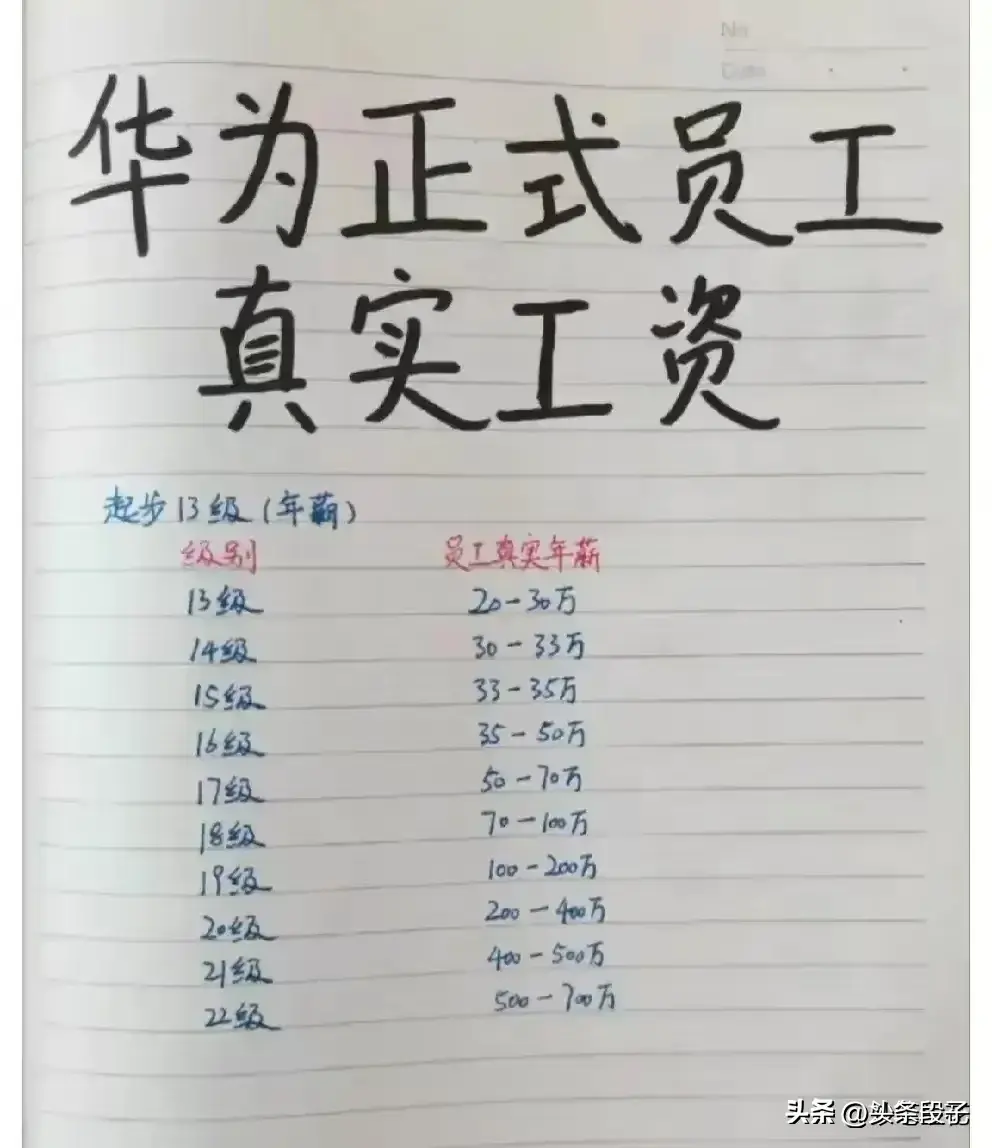 No
Date
华为正式员工
真实工资
起步13级(年薪)
级别 员工真实年薪
13级 20-30万
14级 30-33万
15级 33-35万
16级 35-50万
17级 50-70万
18级 70-100万
19级 100-200万
20级 200-400万
21级 400-500万
22级 500-700万
头条 @头条段子